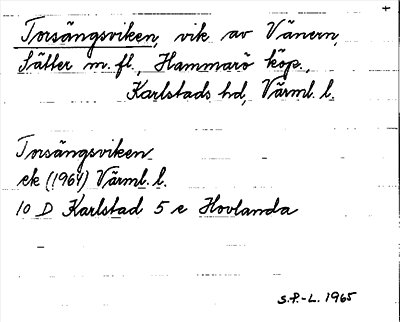 Torsängsviken, vik av Vänern,
Sätter m.fl., Hammarö köp.,
Karlstads hd, Värml. l.
Torsängsviken
ek (1964) Värml. l.
10 D Karlstad 5 e Hovlanda
S.P.-L. 1965